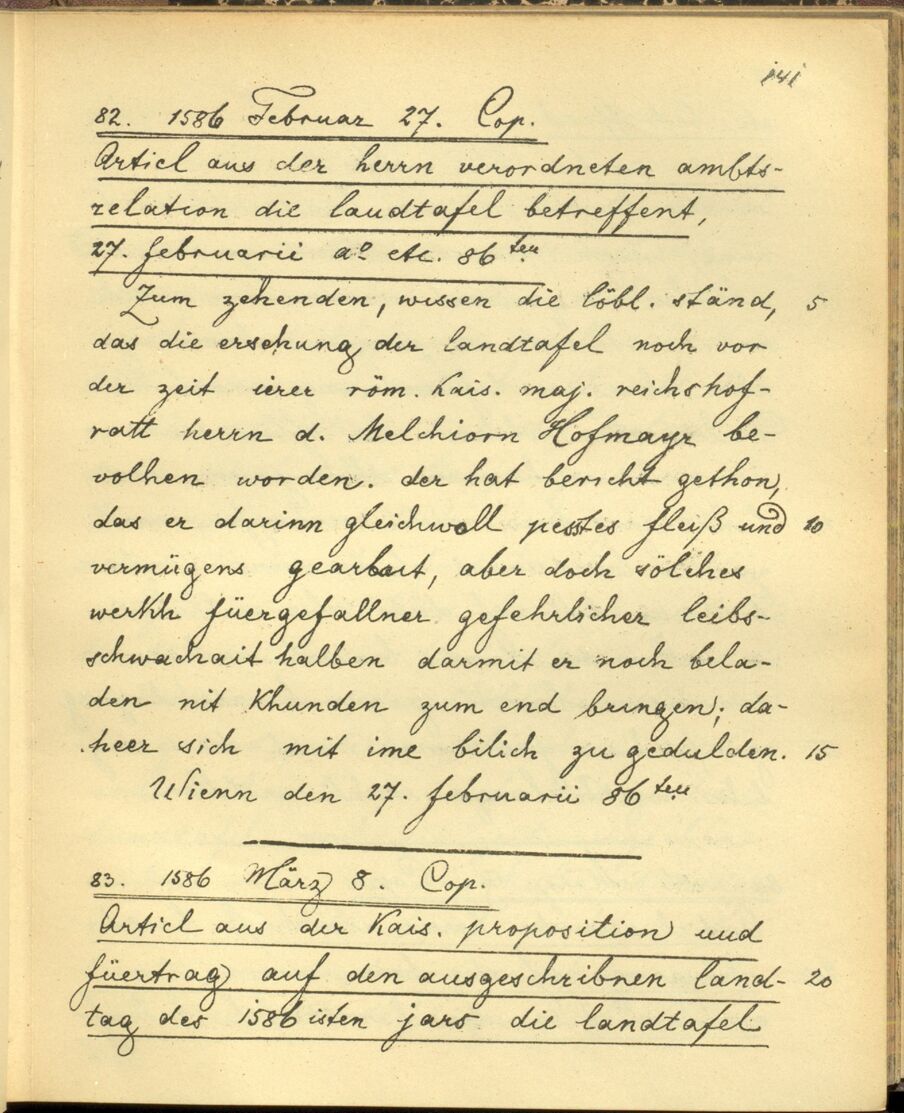 141
82. 1586 Februar 27. Cop.
Articl aus der herrn verordneten ambts-
relation die landtafel betreffent,
27. februarii aº etc. 86ten
Zum zehenden, wissen die löbl. ständ, 5
das die ersehung der landtafel noch vor
der zeit irer röm. Kais. maj. reichshof-
ratt herrn d. Melchiorn Hofmayr be-
volhen worden. der hat bericht gethon,
das er darinn gleichwoll pesstes fleiß und 10
vermügens gearbait, aber doch sölches
werkh füergefallner gefehrlicher leibs-
schwachait halben darmit er noch bela-
den nit Khunden zum end bringen; da-
heer sich mit ime bilich zu gedulden. 15
Wienn den 27. februarii 86ten
83. 1586 März 8. Cop.
Articl aus der Kais. proposition und
füertrag auf den ausgeschribnen land- 20
tag des 1586isten jars die landtafel